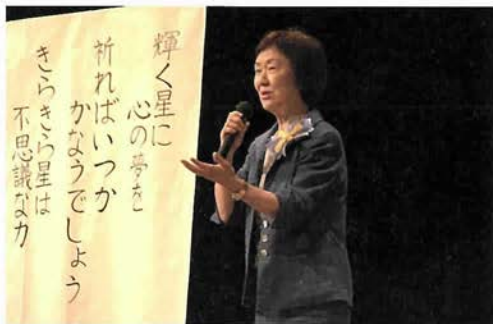 輝く星に
心の夢を
祈ればいつか
かなうでしょう
きらきら星は
不思議な力